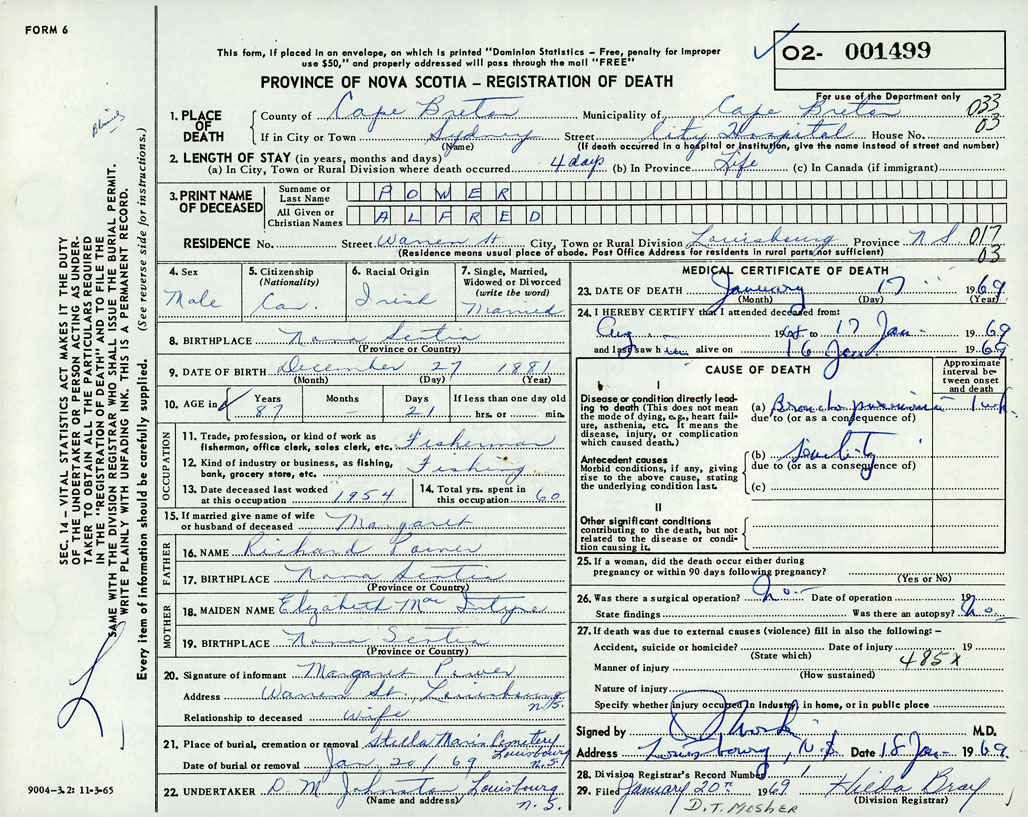 FORM 6
This form, if placed in an envelope, on which is printed "Dominion Statistics – Free, penalty for improper
use $50," and properly addressed will pass through the mail "FREE"
PROVINCE OF NOVA SCOTIA – REGISTRATION OF DEATH
02- 001499
For use of the Department only
033
03
1. PLACE OF DEATH
County of Cape Breton Municipality of Cape Breton
If in City or Town Sydney Street City Hospital House No.
(Name) (If death occurred in a hospital or institution, give the name instead of street and number)
2. LENGTH OF STAY (in years, months and days)
(a) In City, Town or Rural Division where death occurred 4 days (b) In Province Life (c) In Canada (if immigrant)
3. PRINT NAME OF DECEASED
Surname or Last Name POWER
All Given or Christian Names ALFRED
RESIDENCE No. Street Warren St City, Town or Rural Division Louisbourg Province N S 017
(Residence means usual place of abode. Post Office Address for residents in rural parts not sufficient) 03
4. Sex
Male
5. Citizenship
(Nationality)
Can.
6. Racial Origin
Irish
7. Single, Married,
Widowed or Divorced
(write the word)
Married
8. BIRTHPLACE Nova Scotia
(Province or Country)
9. DATE OF BIRTH December 27 1881
(Month) (Day) (Year)
10. AGE in
Years
87
Months
–
Days
21
If less than one day old
hrs. or min.
OCCUPATION
11. Trade, profession, or kind of work as
fisherman, office clerk, sales clerk, etc. Fisherman
12. Kind of industry or business, as fishing,
bank, grocery store, etc. Fishing
13. Date deceased last worked
at this occupation 1954
14. Total yrs. spent in
this occupation 60
15. If married give name of wife
or husband of deceased Margaret
FATHER
16. NAME Richard Power
17. BIRTHPLACE Nova Scotia
(Province or Country)
MOTHER
18. MAIDEN NAME Elizabeth Mac Intyre
19. BIRTHPLACE Nova Scotia
(Province or Country)
20. Signature of informant Margaret Power
Address Warren St, Louisbourg
N.S.
Relationship to deceased wife
21. Place of burial, cremation or removal Stella Maris Cemetery
Louisbourg
N.S.
Date of burial or removal Jan 20 / 69
22. UNDERTAKER D. M Johnston Louisbourg
(Name and address) N.S.
MEDICAL CERTIFICATE OF DEATH
23. DATE OF DEATH January 17 1969
(Month) (Day) (Year)
24. I HEREBY CERTIFY that I attended deceased from:
Aug. 1968 to 17 Jan 1969
and last saw him alive on 16 Jan 1969
CAUSE OF DEATH
Approximate
interval be-
tween onset
and death
I
Disease or condition directly lead-
ing to death (This does not mean
the mode of dying, e.g., heart fail-
ure, asthenia, etc. It means the
disease, injury, or complication
which caused death.)
(a) Bronchopneumonia 1 wk
due to (or as a consequence of)
Antecedent causes
Morbid conditions, if any, giving
rise to the above cause, stating
the underlying condition last.
(b) Senility
due to (or as a consequence of)
(c)
II
Other significant conditions
contributing to the death, but not
related to the disease or condi-
tion causing it.
25. If a woman, did the death occur either during
pregnancy or within 90 days following pregnancy?
(Yes or No)
26. Was there a surgical operation? No Date of operation 19
State findings Was there an autopsy? No
27. If death was due to external causes (violence) fill in also the following: –
Accident, suicide or homicide? Date of injury 19
(State which) 485X
Manner of injury
(How sustained)
Nature of injury
Specify whether injury occurred in industry, in home, or in public place
Signed by M.D.
Address Louisbourg, N.S. Date 18 Jan 1969
28. Division Registrar's Record Number 1
29. Filed January 20th 1969 Hilda Bray
(Division Registrar)
D.T. MOSHER
SEC. 14 – VITAL STATISTICS ACT MAKES IT THE DUTY
OF THE UNDERTAKER OR PERSON ACTING AS UNDER-
TAKER TO OBTAIN ALL THE PARTICULARS REQUIRED
IN THE "REGISTRATION OF DEATH" AND TO FILE THE
SAME WITH THE DIVISION REGISTRAR WHO SHALL ISSUE THE BURIAL PERMIT.
WRITE PLAINLY WITH UNFADING INK. THIS IS A PERMANENT RECORD.
Every item of Information should be carefully supplied. (See reverse side for instructions.)
9004-3.2: 11-3-65